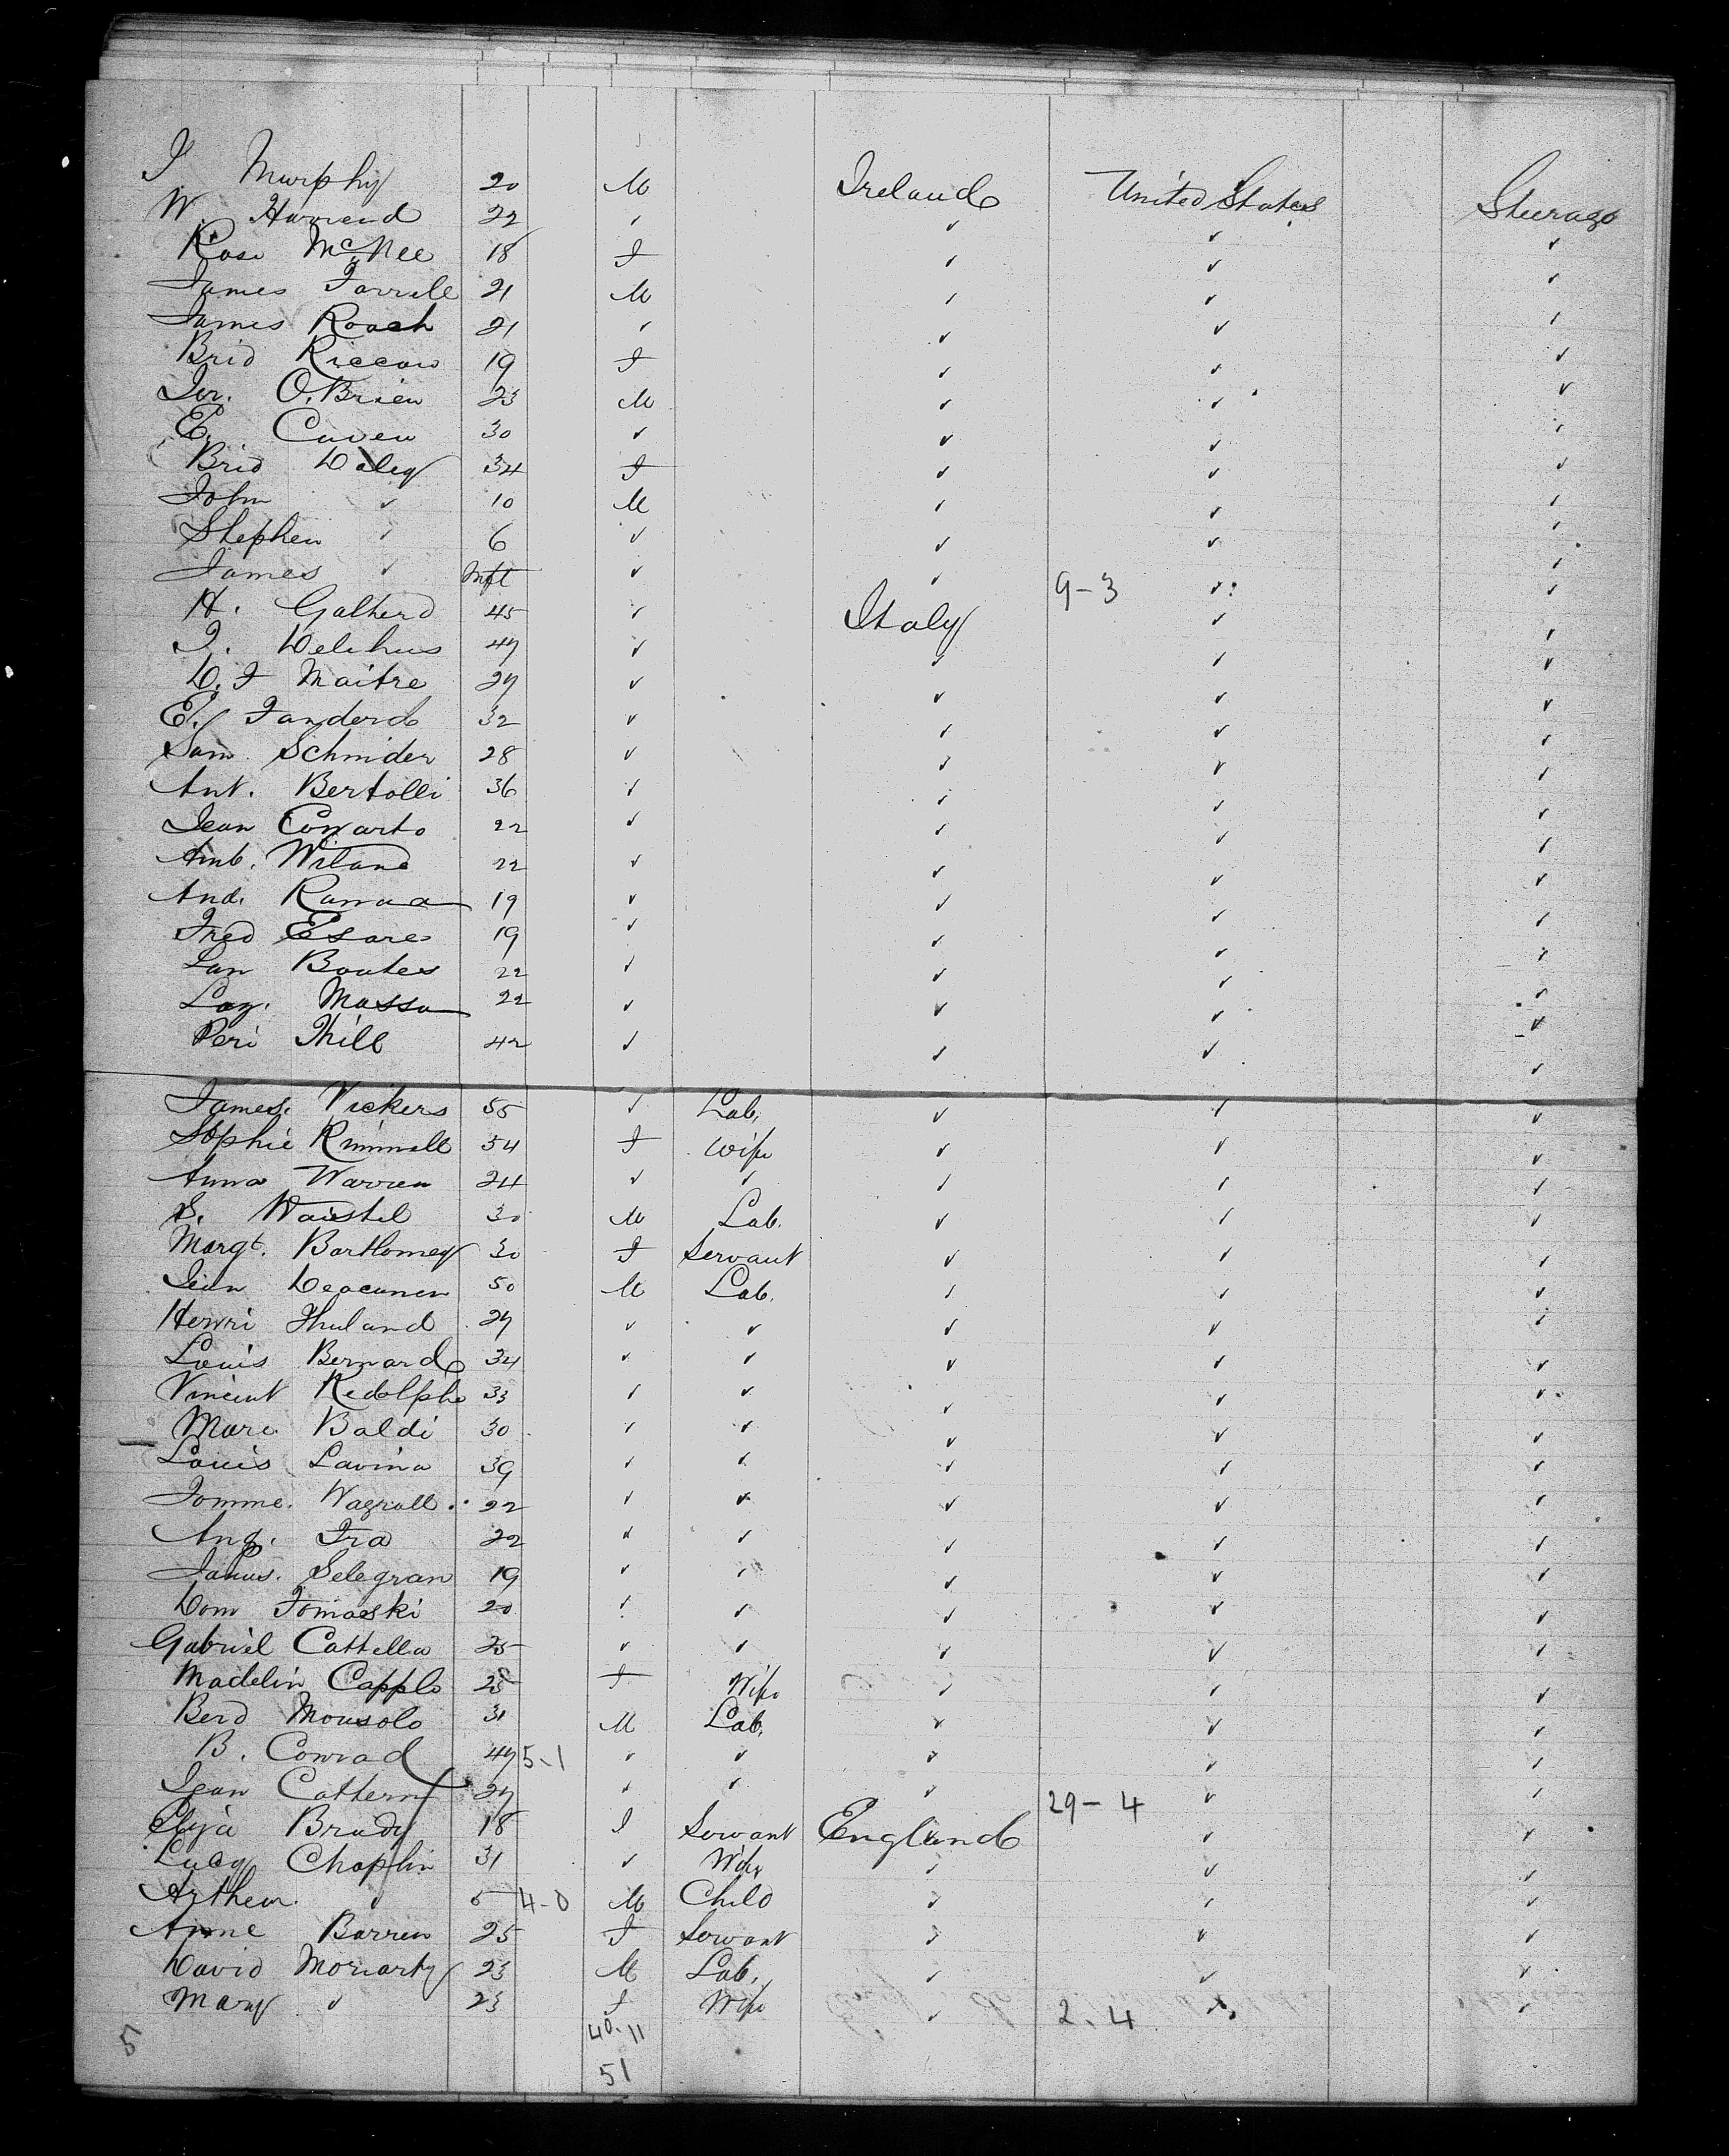 J Murphy 20 M Ireland United States Steerage
W. Howend 22 ✓ ✓ ✓ ✓
Rose McNee 18 F ✓ ✓ ✓
James Farrell 21 M ✓ ✓ ✓
James Roach 21 ✓ ✓ ✓ ✓
Brid 19 F ✓ ✓ ✓
Jer. O.Brien 23 M ✓ ✓ ✓
E. Caven 30 ✓ ✓ ✓ ✓
Brid Daley 34 F ✓ ✓ ✓
John ✓ 10 M ✓ ✓ ✓
Stephen ✓ 6 ✓ ✓ ✓ ✓
James ✓ Inft ✓ ✓ 9-3 ✓ ✓
H. Galherd 45 ✓ Italy ✓ ✓
J. 47 ✓ ✓ ✓ ✓
D. F Maitre 27 ✓ ✓ ✓ ✓
E. Fanderd 32 ✓ ✓ ✓ ✓
Sam. Schnider 28 ✓ ✓ ✓ ✓
Ant. Bertolli 36 ✓ ✓ ✓ ✓
Jean 22 ✓ ✓ ✓ ✓
Amb. Witana 22 ✓ ✓ ✓ ✓
And. 19 ✓ ✓ ✓ ✓
Fred Esare 19 ✓ ✓ ✓ ✓
Lan Boutes 22 ✓ ✓ ✓ ✓
Laz. Massa 22 ✓ ✓ ✓ ✓
Peri Thill 42 ✓ ✓ ✓ ✓
James. Vickers 55 ✓ Lab. ✓ ✓ ✓
Sophie Rimmell 34 F Wife ✓ ✓ ✓
Anna Warren 24 ✓ ✓ ✓ ✓ ✓
S. 30 M Lab. ✓ ✓ ✓
Margt. Bartlomey 30 F Servant ✓ ✓ ✓
Jean Deacunen 50 M Lab. ✓ ✓ ✓
Henri Thuland 27 ✓ ✓ ✓ ✓ ✓
Louis Bernard 34 ✓ ✓ ✓ ✓ ✓
Vincent Redolphe 33 ✓ ✓ ✓ ✓ ✓
Marc Baldi 30 ✓ ✓ ✓ ✓ ✓
Louis Lavina 39 ✓ ✓ ✓ ✓ ✓
Tomme. Wagrall 22 ✓ ✓ ✓ ✓ ✓
Ang. Fra 22 ✓ ✓ ✓ ✓ ✓
Selegran 19 ✓ ✓ ✓ ✓ ✓
Dom Tomaeski 20 ✓ ✓ ✓ ✓ ✓
Gabriel Cattella 25 ✓ ✓ ✓ ✓ ✓
Madelin Capplo 25 F Wife ✓ ✓ ✓
Berd Mousolo 31 M Lab. ✓ ✓ ✓
B. Conrad 47 5-1 ✓ ✓ ✓ ✓ ✓
Jean Catterm 27 ✓ ✓ ✓ 29-4 ✓ ✓
Eliza Brady 18 F Servant England ✓ ✓
Lucy Chaplin 31 ✓ Wife ✓ ✓ ✓
Arthur ✓ 5 4-0 M Child ✓ ✓ ✓
Anne Barren 25 F Servant ✓ ✓ ✓
David Moriarty 23 M Lab. ✓ ✓ ✓
Mary ✓ 23 F Wife ✓ 2.4 ✓ ✓
40.11
5 51